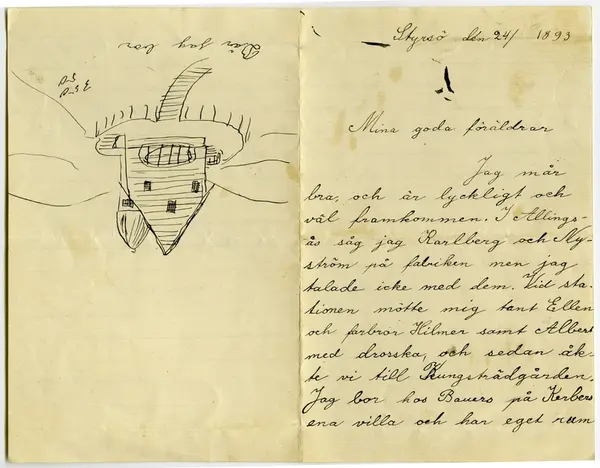 Där jag bor
Styrsö den 24/ 1893
Mina goda föräldrar
Jag mår
bra, och är lyckligt och
väl framkommen. I Alings-
ås såg jag Karlberg och Ny-
ström på fabriken men jag
talade icke med dem. Vid sta-
tionen mötte mig tant Ellen
och farbror Hilmer samt Albert
med droska, och sedan åk-
te vi till Kungsträdgården.
Jag bor hos Bauers på Kerbers
ena villa och har eget rum